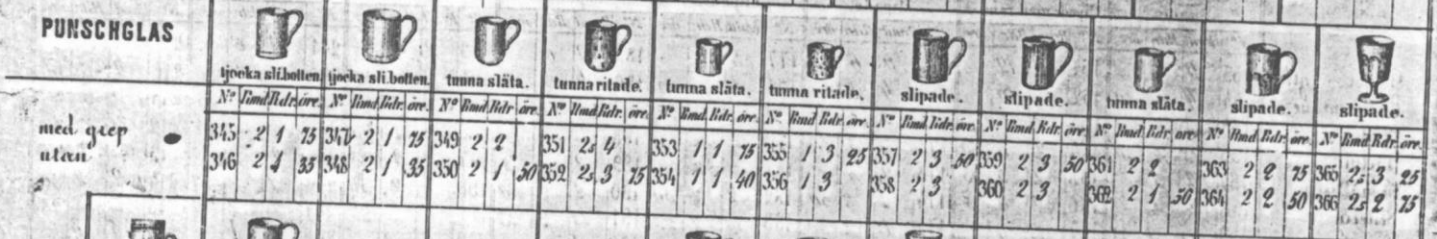 PUNSCHGLAS
tjocka sli.botten. tjocka sli.botten. tunna släta. tunna ritade. tunna släta. tunna ritade. slipade. slipade. tunna släta. slipade. slipade.
Nº Rmd Rdr. öre. Nº Rmd Rdr. öre. Nº Rmd Rdr. öre. Nº Rmd Rdr. öre. Nº Rmd Rdr. öre. Nº Rmd Rdr. öre. Nº Rmd Rdr. öre. Nº Rmd Rdr. öre. Nº Rmd Rdr öre. Nº Rmd Rdr. öre. Nº Rmd Rdr. öre.
med grep 345 2 1 75 347 2 1 75 349 2 2 351 2 4 353 1 1 75 355 1 3 25 357 2 3 50 359 2 3 50 361 2 2 363 2 2 75 365 2 3 25
utan 346 2 1 35 348 2 1 35 350 2 1 50 352 2 3 75 354 1 1 40 356 1 3 358 2 3 360 2 3 362 2 1 50 364 2 2 50 366 2 2 75